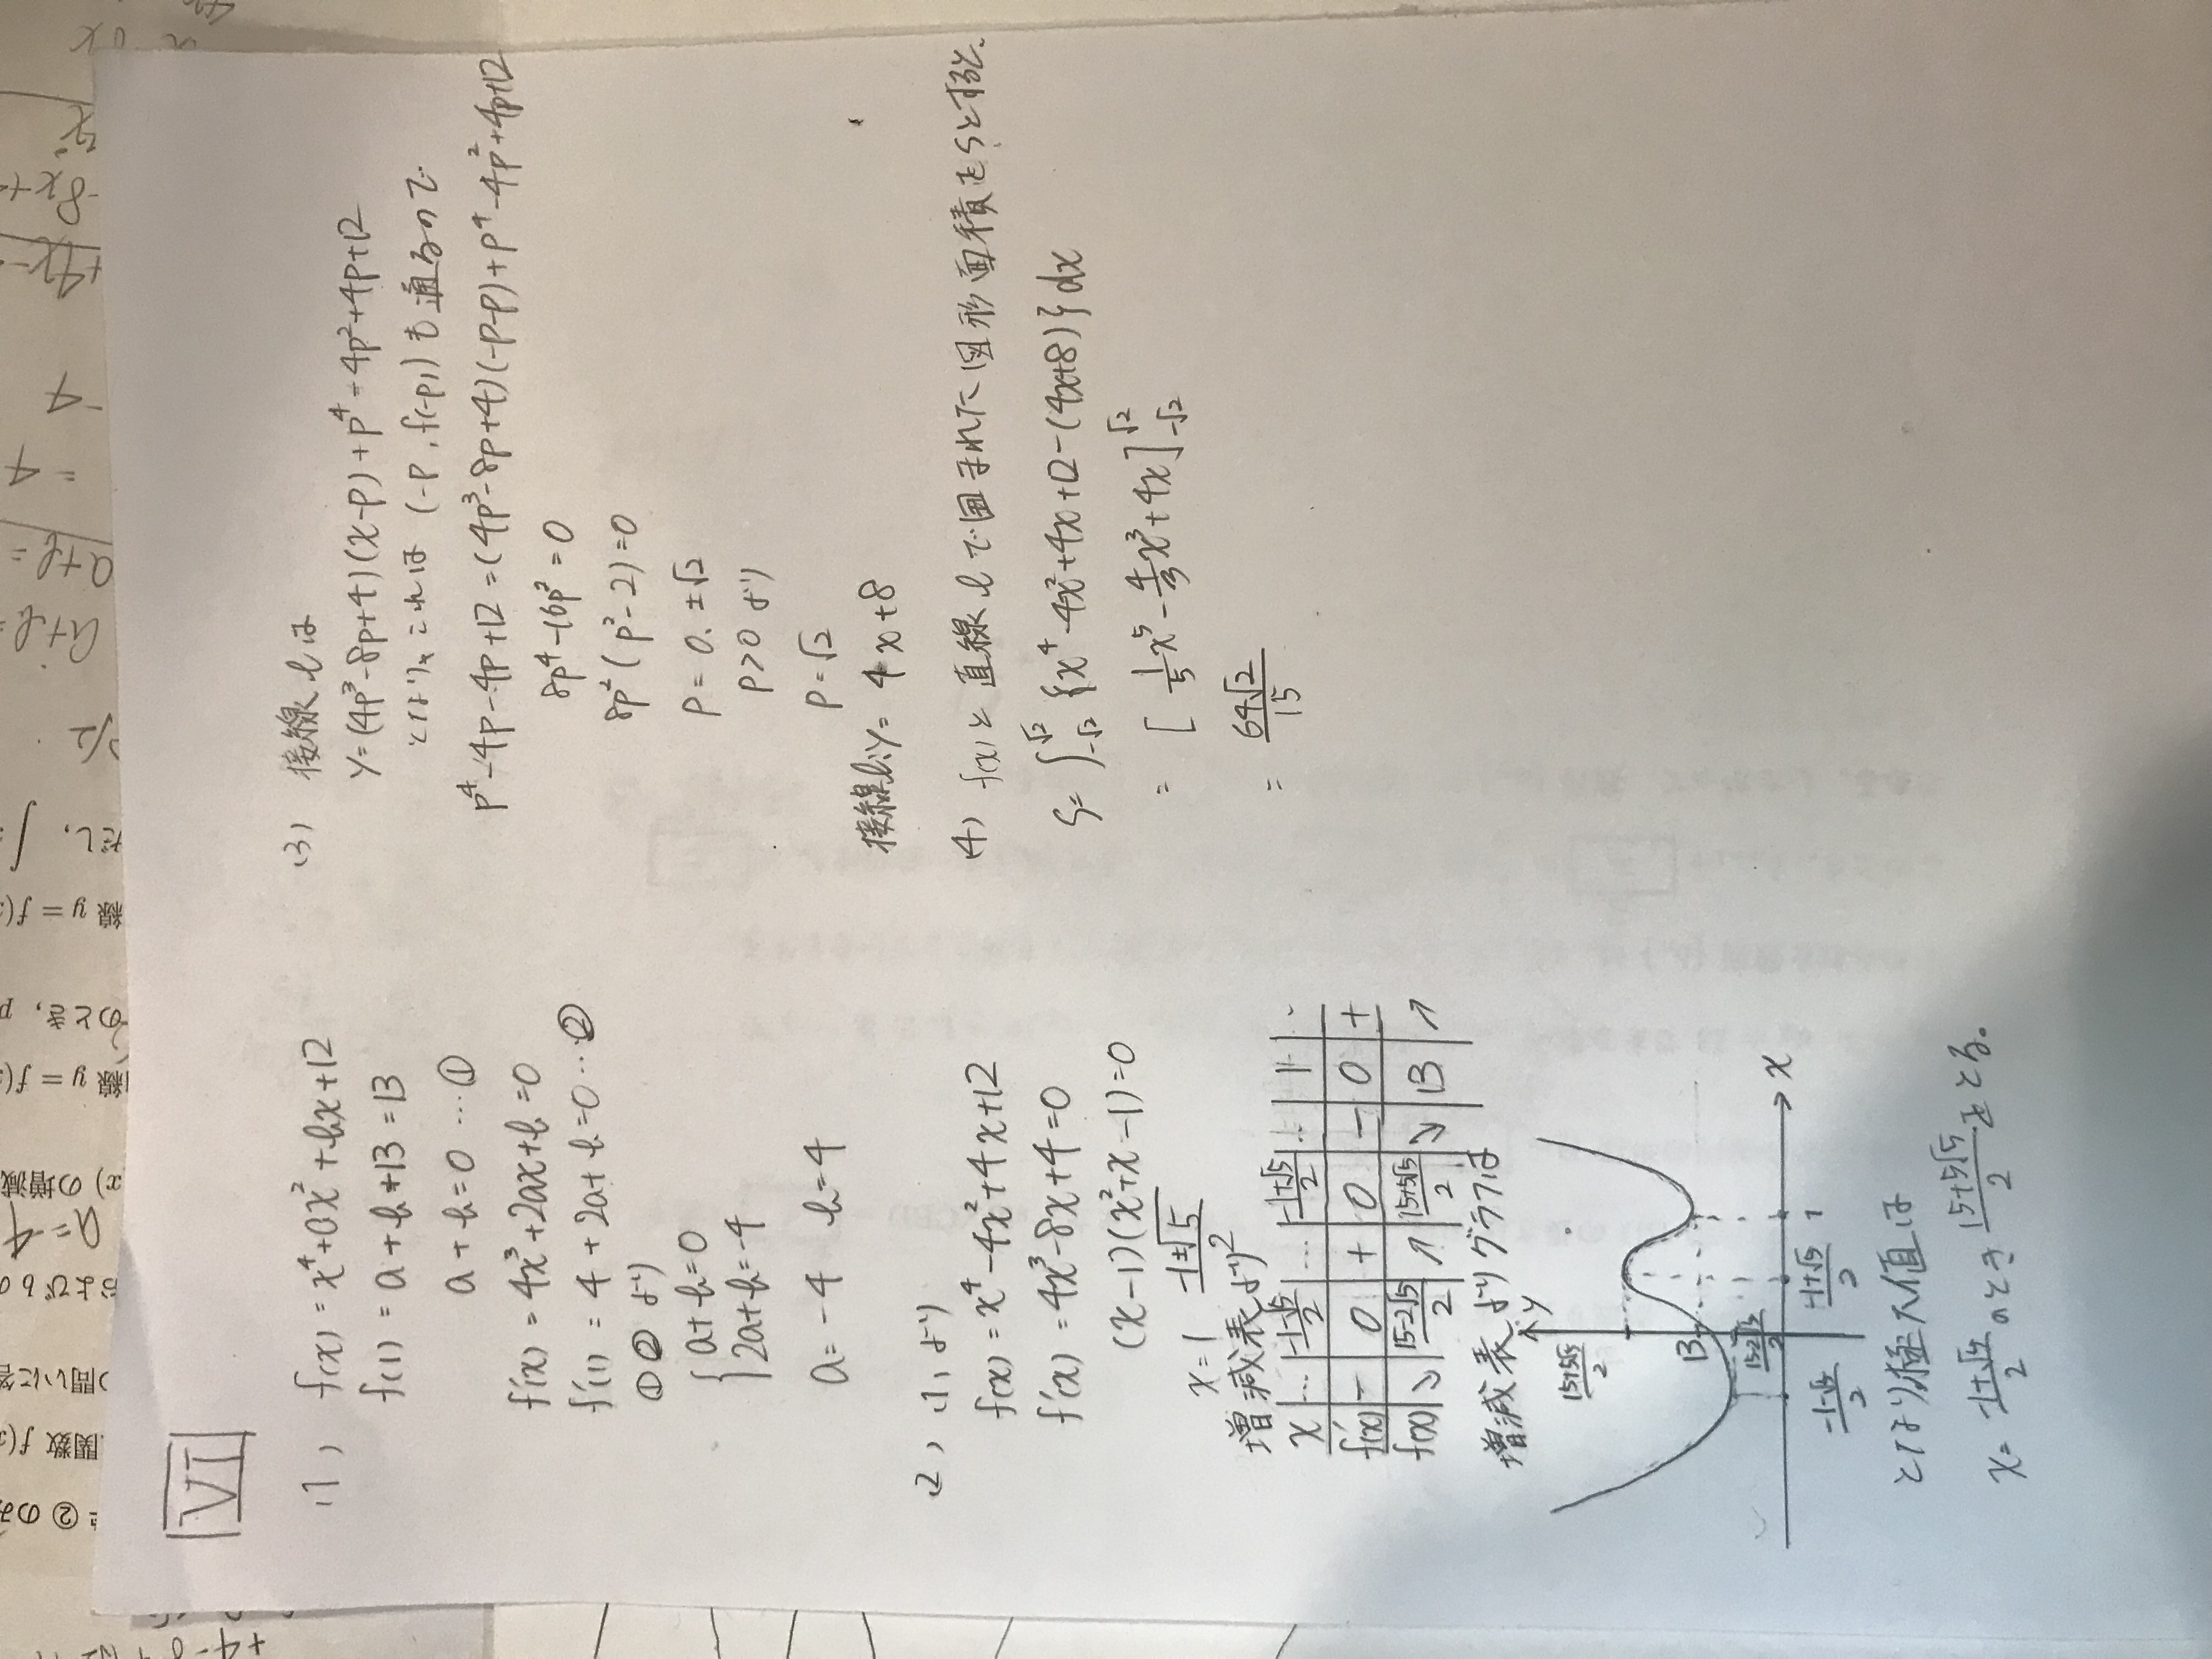 VI
(1) f(x) = x⁴+ax²+bx+12
f(1) = a+b+13 = 13
a+b=0 …①
f'(x) = 4x³+2ax+b=0
f'(1) = 4+2a+b=0…②
①②より
{ a+b=0
2a+b=-4
a=-4 b=4
(2) (1)より
f(x) = x⁴-4x²+4x+12
f'(x) = 4x³-8x+4=0
(x-1)(x²+x-1)=0
x=1 (-1±√5)/2
増減表より
x … (-1-√5)/2 … (-1+√5)/2 … 1 …
f'(x) - 0 + 0 - 0 +
f(x) ↘ (15-2√5)/2 ↗ (15+5√5)/2 ↘ 13 ↗
増減表よりグラフは
y
(15+5√5)/2
13
x
(-1-√5)/2 (-1+√5)/2 1
とより極大値は
x= (-1+√5)/2 のとき (15+5√5)/2 をとる.
(3) 接線lは
y=(4p³-8p+4)(x-p)+p⁴-4p²+4p+12
とより、これは (-p, f(-p)) も通るので
p⁴-4p-4p+12=(4p³-8p+4)(-p-p)+p⁴-4p²+4p+12
8p⁴-16p²=0
8p²(p²-2)=0
p=0. ±√2
p>0 より
p=√2
接線l:y=4x+8
(4) f(x)と直線lで囲まれた図形面積をSとすると.
S=∫_{-√2}^{√2} {x⁴-4x²+4x+12-(4x+8)}dx
= [1/5x⁵-4/3x³+4x]_{-√2}^{√2}
= 64√2/15
線 y = f(
のとき, p
線 y = f(
x) の増減
a=-4
および b の
の問いに答
関数 f(x
② のみ